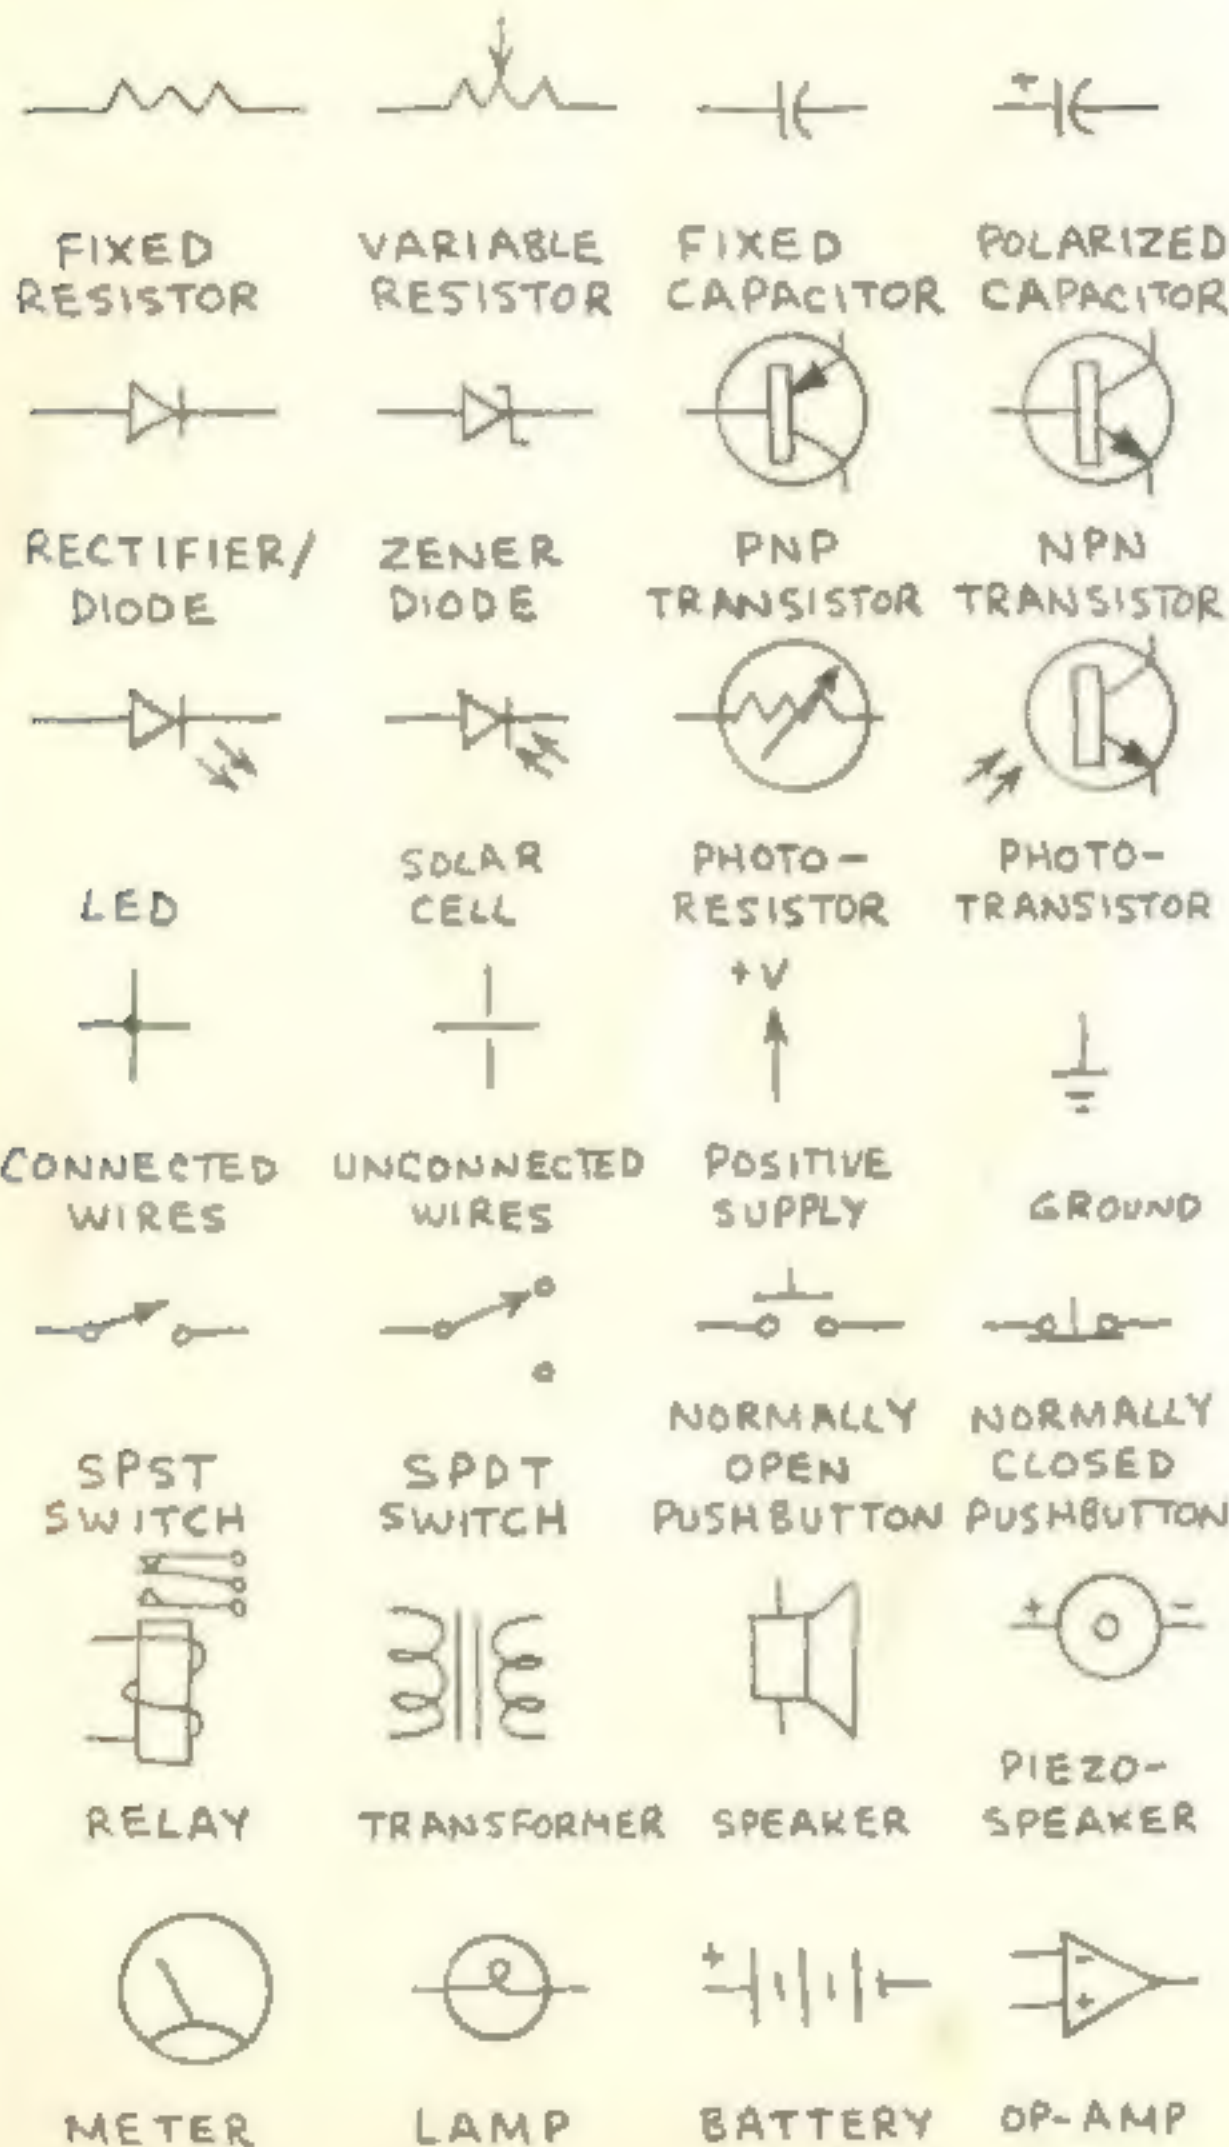 +
FIXED
RESISTOR
VARIABLE
RESISTOR
FIXED
CAPACITOR
POLARIZED
CAPACITOR
RECTIFIER/
DIODE
ZENER
DIODE
PNP
TRANSISTOR
NPN
TRANSISTOR
LED
SOLAR
CELL
PHOTO-
RESISTOR
PHOTO-
TRANSISTOR
+V
CONNECTED
WIRES
UNCONNECTED
WIRES
POSITIVE
SUPPLY
GROUND
SPST
SWITCH
SPDT
SWITCH
NORMALLY
OPEN
PUSHBUTTON
NORMALLY
CLOSED
PUSHBUTTON
+ -
RELAY
TRANSFORMER
SPEAKER
PIEZO-
SPEAKER
+
-
+
METER
LAMP
BATTERY
OP-AMP